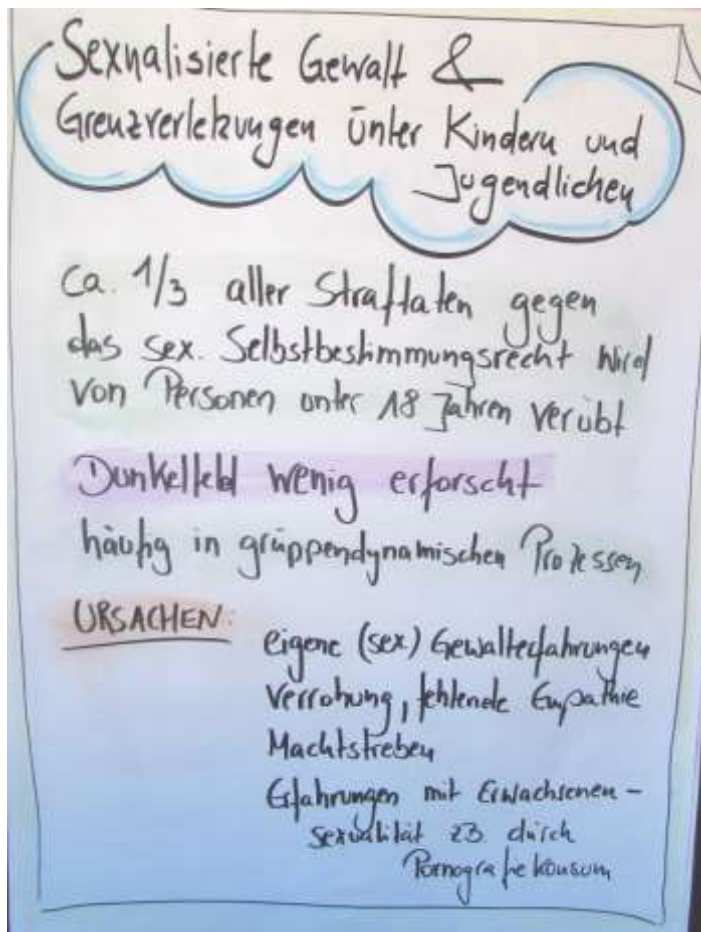 Sexualisierte Gewalt &
Grenzverletzungen unter Kindern und
Jugendlichen
Ca. 1/3 aller Straftaten gegen
das sex. Selbstbestimmungsrecht wird
von Personen unter 18 Jahren verübt
Dunkelfeld wenig erforscht
häufig in gruppendynamischen Prozessen
URSACHEN:
eigene (sex.) Gewalterfahrungen
Verrohung, fehlende Empathie
Machtstreben
Erfahrungen mit Erwachsenen-
sexualität zB. durch
Pornografiekonsum